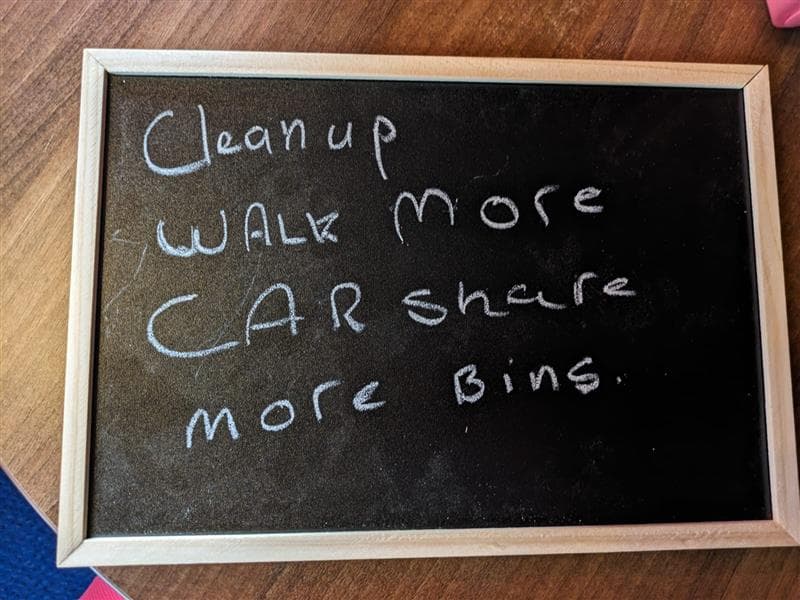 Cleanup
WALK more
CAR share
more Bins.